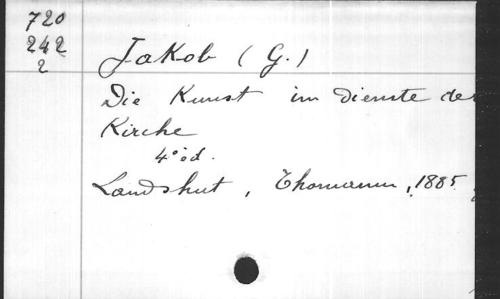 720
242
2
Jakob (G.)
Die Kunst im Dienste der
Kirche
4° éd.
Landshut, Thomann, 1885